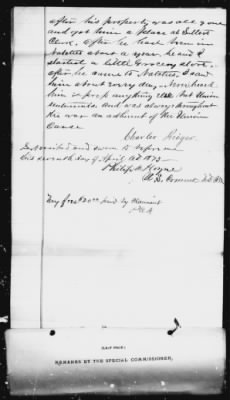 after his property was all gone
and got him a place as
Clerk. After he had been in
Natchez about a year, he and I
started a little Grocery store.
after he came to Natchez, I saw
him about every day. never heard
him express anything else but Union
sentiments. And was always throughout
the war an adherent of the Union
Cause
Charles
Subscribed and sworn to before me
this seventh day of April AD 1873—
Philip
My fees paid by Claimant
[LAST PAGE.]
REMARKS BY THE SPECIAL COMMISSIONER.